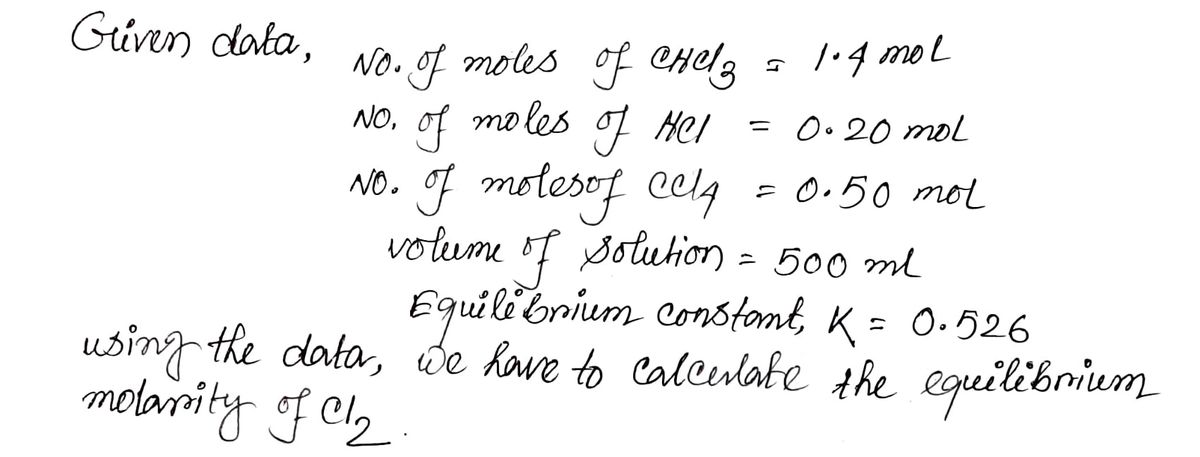 Given data,
No. of moles of CHCl3 = 1.4 mol
No. of moles of HCl = 0.20 mol
No. of moles of CCl4 = 0.50 mol
volume of solution = 500 ml
Equilibrium constant, K = 0.526
using the data, we have to calculate the equilibrium
molarity of Cl2.